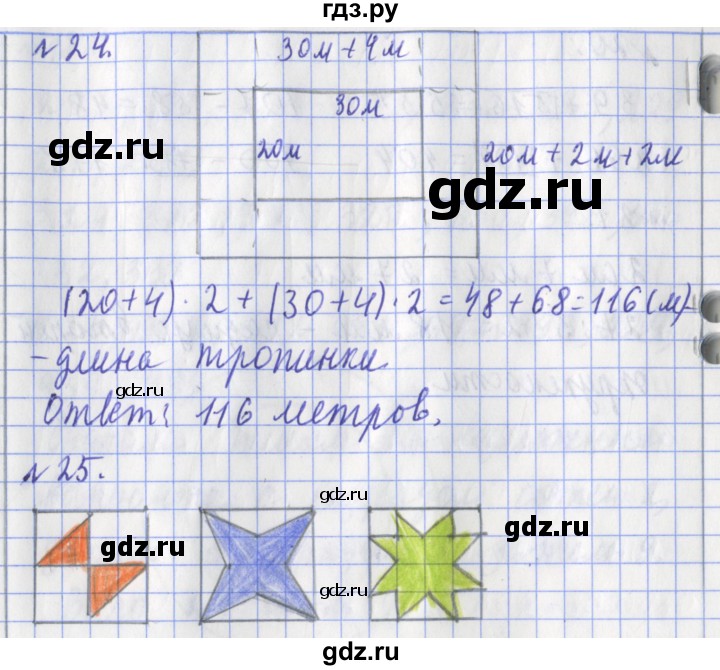 гдз.ру
№24.
30м + 4м
30м
20м
20м + 2м + 2м
gdz.ru
gdz.ru
(20+4) · 2 + (30+4) · 2 = 48 + 68 = 116 (м) -
- длина тропинки
gdz.ru
Ответ: 116 метров.
№25.
gdz.ru
gdz.ru
gdz.ru
gdz.ru